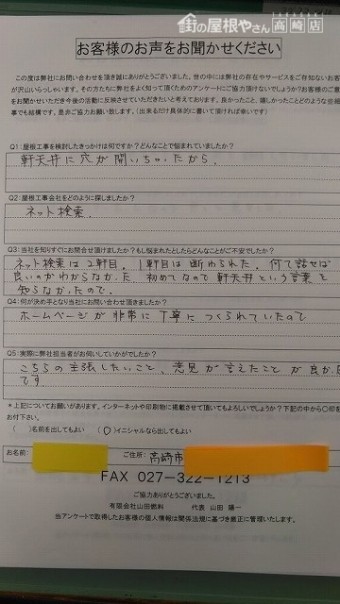 街の屋根やさん高崎店
お客様のお声をお聞かせください
この度は弊社にお問い合わせを頂き誠にありがとうございました。世の中には弊社の存在やサービスをご存知ないお客
が沢山いらっしゃいます。その方たちに弊社をよく知って頂くためのアンケートにご協力頂けないでしょうか?お客様のご意
をお聞かせいただき今後の活動に反映させていただきたいと考えております。良かったこと、嬉しかったことどのような些細
事でも結構です。是非ご協力お願い致します。(出来るだけ具体的に書いて頂ければ幸いです)
Q1:屋根工事を検討したきっかけは何ですか?どんなことで悩まれていましたか?
軒天井に穴が開いちゃたから。
Q2:屋根工事会社をどのように探しましたか?
ネット検索.
Q3:当社を知りすぐにお問合せ頂けましたか?もし悩まれたとしたらどんなことがご不安でしたか?
ネット検索は2軒目。1軒目は断わられた。何て話せば
良いのかわからなかった 初めてなので軒天井という言葉を
知らなかたので.
Q4:何が決め手となり当社にお問い合わせ頂きましたか?
ホームページが非常に丁寧につくられていたので
Q5:実際に弊社担当者がお伺いしていかがでしたか?
こちらの主張したいこと、意見が言えたことが良か
です
*上記についてお願いがあります。インターネットや印刷物に掲載させて頂いてもよろしいでしょうか?下記の中から〇印を
お付下さい。
( )名前を出してもよい (○)イニシャルなら出してもよい
お名前: ご住所: 高崎市
FAX 027-322-1213
ご協力ありがとうございました。
有限会社山田燃料 代表 山田 陽一
当アンケートで取得したお客様の個人情報は関係法規に基づき厳正に管理いたします。